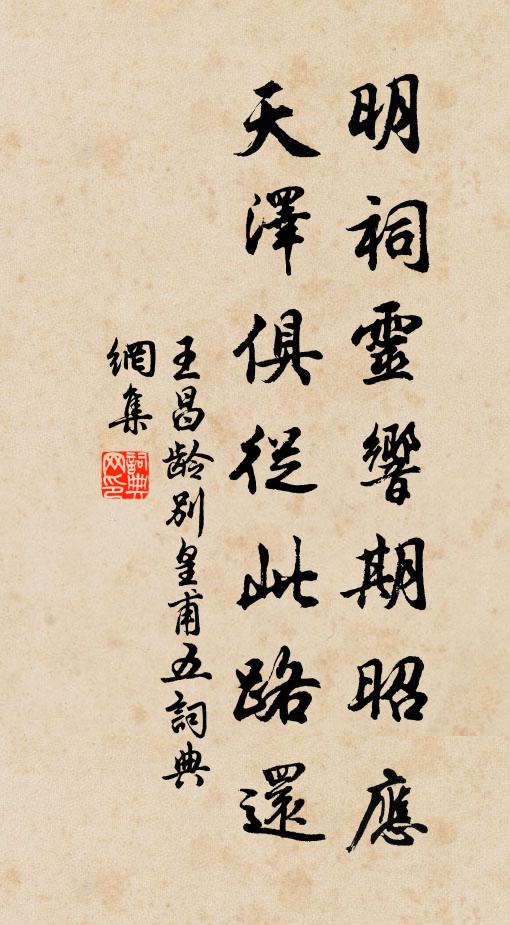 明祠靈響期昭應
天澤俱從此路還
王昌齡別皇甫五詞典
網集
詞典网印